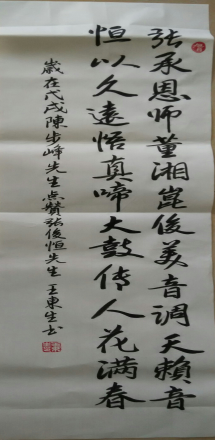 张承恩师董湘崑俊美音调天籁音
恒以久远悟真啼大鼓传人花满春
歲在戊戌陳步峰先生点赞张俊恒先生王東生书